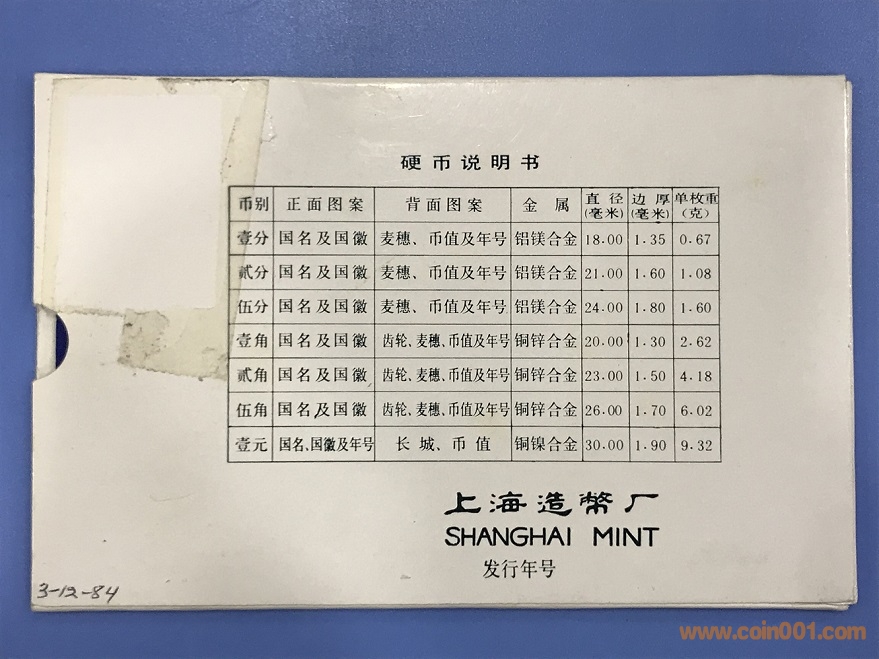 硬币说明书
币别 正面图案 背面图案 金属 直径(毫米) 边厚(毫米) 单枚重(克)
壹分 国名及国徽 麦穗、币值及年号 铝镁合金 18.00 1.35 0.67
贰分 国名及国徽 麦穗、币值及年号 铝镁合金 21.00 1.60 1.08
伍分 国名及国徽 麦穗、币值及年号 铝镁合金 24.00 1.80 1.60
壹角 国名及国徽 齿轮、麦穗、币值及年号 铜锌合金 20.00 1.30 2.62
贰角 国名及国徽 齿轮、麦穗、币值及年号 铜锌合金 23.00 1.50 4.18
伍角 国名及国徽 齿轮、麦穗、币值及年号 铜锌合金 26.00 1.70 6.02
壹元 国名、国徽及年号 长城、币值 铜镍合金 30.00 1.90 9.32
上海造幣厂
SHANGHAI MINT
发行年号
3-12-84
www.coin001.com